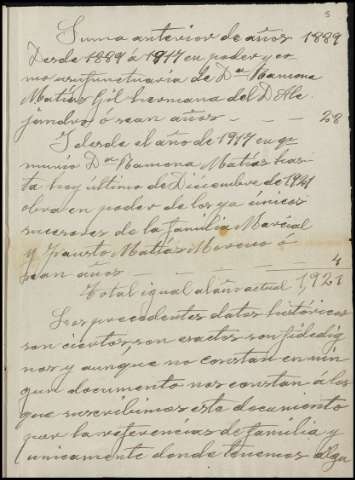 5
Suma anterior de años 1889
Desde 1889 á 1917 en poder y co
mo usufructuaria de Dª Ramona
Matías Gil hermana del D. Ale
jandro, ó sean años - - - 28
Y desde el año de 1917 en qe
murió Dª Ramona Matías has-
ta hoy último de Diciembre de 1921
obra en poder de los ya únicos
sucesores de la familia Marcial
y Fausto Matías Moreno ó
sean años - - - - - 4
Total igual al año actual 1,921
Los precedentes datos históricos
son ciertos, son exactos son fidedig
nos y aunque no constan en nin
gun documento nos constan á los
que suscribimos este documento
por la referencias de familia y
unicamente donde tenemos algu